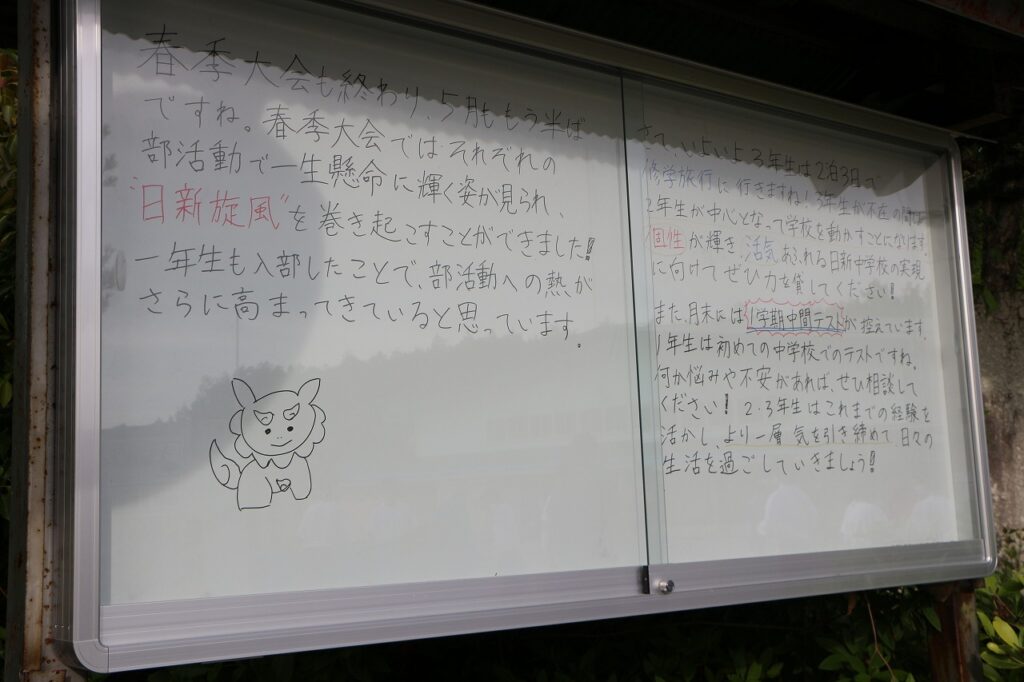 春季大会も終わり、5月ももう半ば
ですね。春季大会ではそれぞれの
部活動で一生懸命に輝く姿が見られ、
"日新旋風"を巻き起こすことができました!!
一年生も入部したことで、部活動への熱が
さらに高まってきていると思っています。
さて、いよいよ3年生は2泊3日で
修学旅行に行きますね!3年生が不在の間は
2年生が中心となって学校を動かすことになります。
個性が輝き、活気あふれる日新中学校の実現
に向けてぜひ力を貸してください!
また、月末には1学期中間テストが控えています。
1年生は初めての中学校でのテストですね。
何か悩みや不安があれば、ぜひ相談して
ください! 2・3年生はこれまでの経験を
活かし、より一層気を引き締めて日々の
生活を過ごしていきましょう!!